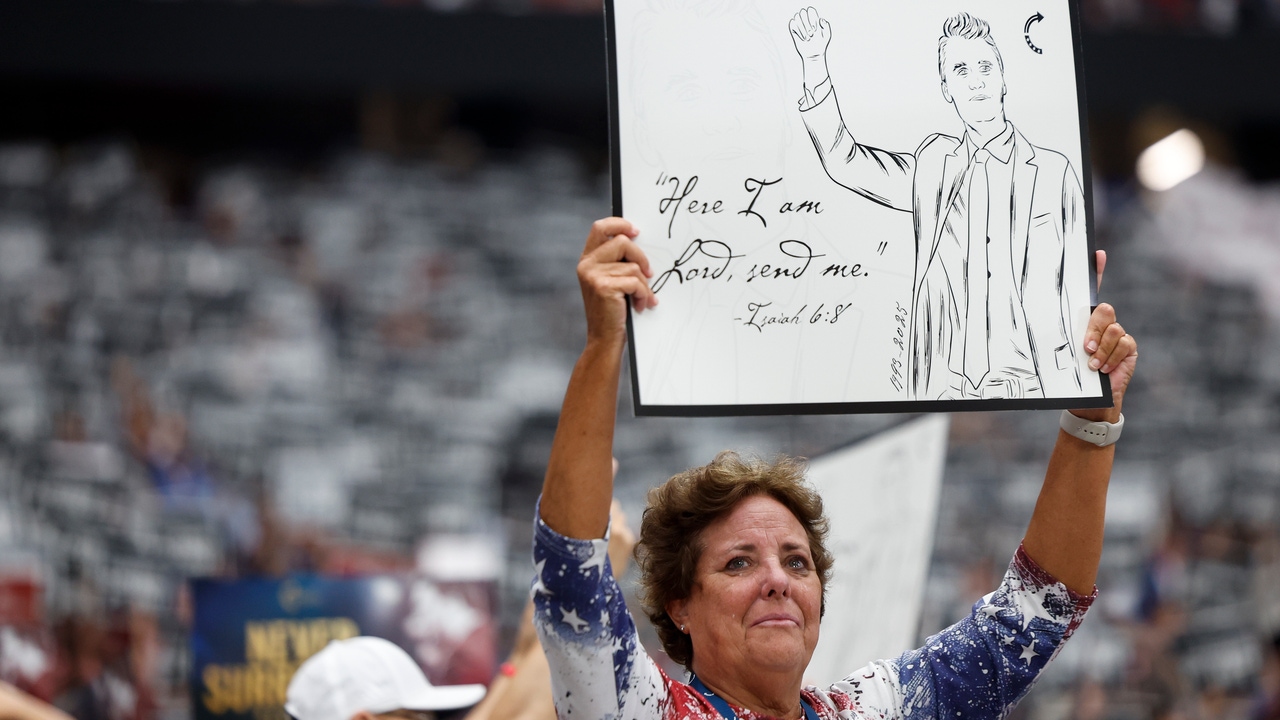 "Here I am
Lord, send me."
-Isaiah 6:8
1993-2025
NEVER